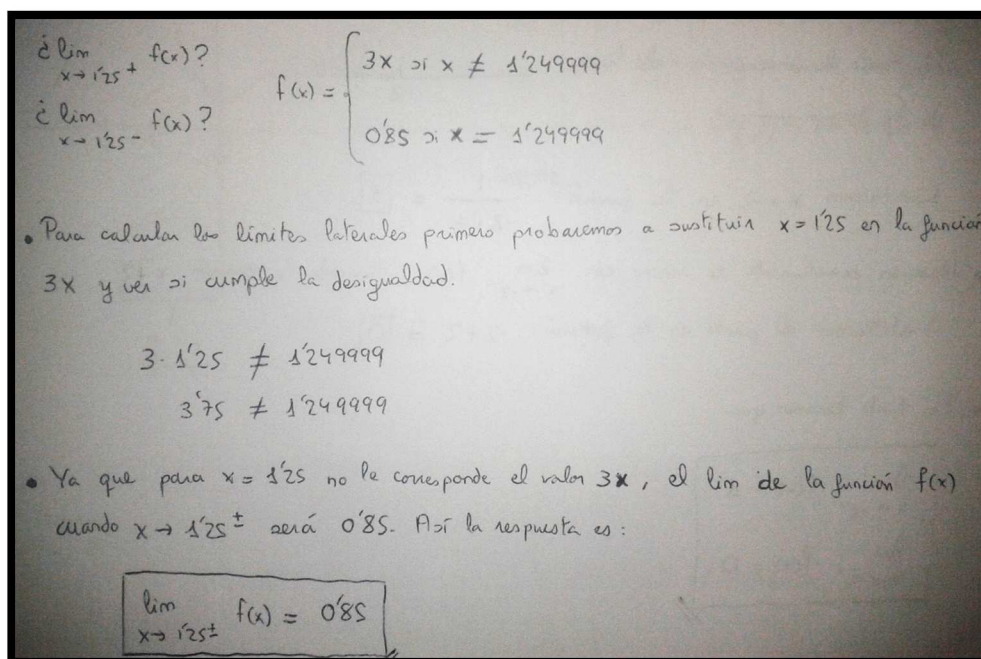 ¿ lim x→1'25⁺ f(x)?
¿ lim x→1'25⁻ f(x)?
f(x) = { 3x si x ≠ 1'249999
0'85 si x = 1'249999
• Para calcular los límites laterales primero probaremos a sustituir x=1'25 en la función
3x y ver si cumple la desigualdad.
3·1'25 ≠ 1'249999
3'75 ≠ 1'249999
• Ya que para x = 1'25 no le corresponde el valor 3x, el lim de la función f(x)
cuando x → 1'25± será 0'85. Así la respuesta es:
lim x→1'25± f(x) = 0'85